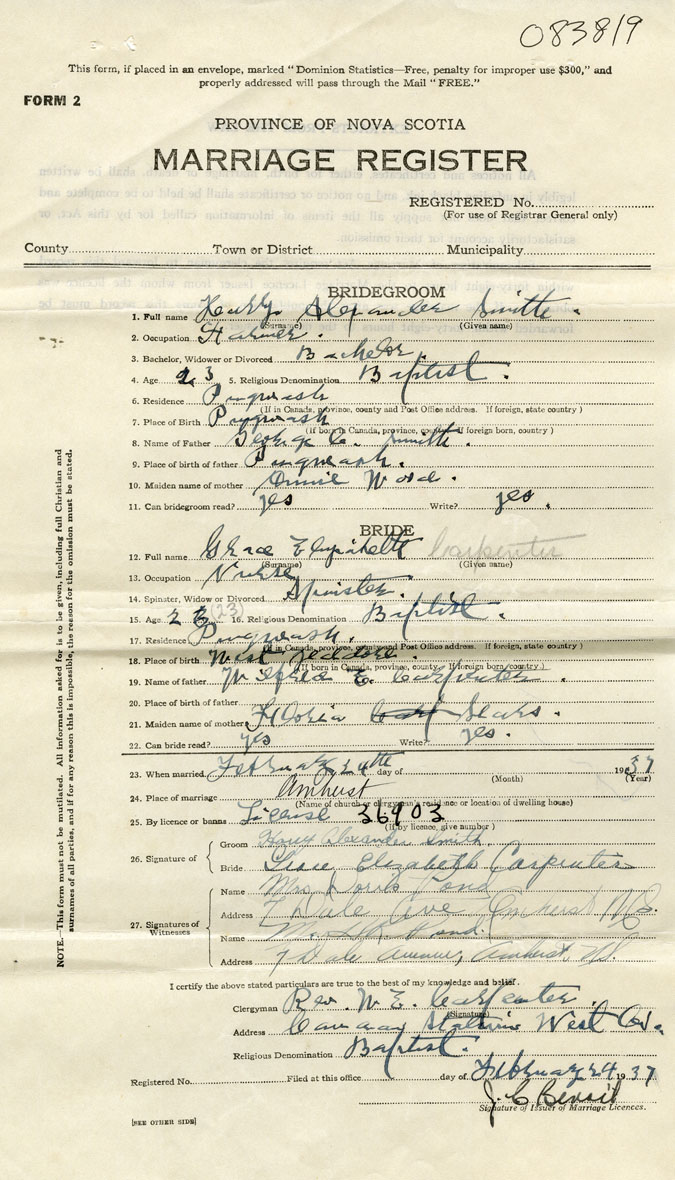 083819
This form, if placed in an envelope, marked "Dominion Statistics—Free, penalty for improper use $300," and
properly addressed will pass through the Mail "FREE."
FORM 2
PROVINCE OF NOVA SCOTIA
MARRIAGE REGISTER
REGISTERED No.
(For use of Registrar General only)
County Town or District Municipality
BRIDEGROOM
1. Full name Henry Alexander Smith
(Surname) (Given name)
2. Occupation Farmer.
3. Bachelor, Widower or Divorced Bachelor.
4. Age 23 5. Religious Denomination Baptist.
6. Residence Pugwash
(If in Canada, province, county and Post Office address. If foreign, state country)
7. Place of Birth Pugwash
(If born in Canada, province, county. If foreign born, country)
8. Name of Father George C. Smith.
9. Place of birth of father Pugwash.
10. Maiden name of mother Annie Wood.
11. Can bridegroom read? yes Write? yes.
BRIDE
12. Full name Grace Elizabeth Carpenter
(Surname) (Given name)
13. Occupation Nurse
14. Spinster, Widow or Divorced Spinster.
15. Age (23) 16. Religious Denomination Baptist.
17. Residence Pugwash.
(If in Canada, province, county and Post Office address. If foreign, state country)
18. Place of birth West Jeddore.
(If born in Canada, province, county. If foreign born, country.)
19. Name of father E. Carpenter.
20. Place of father
21. Maiden name of mother Sears.
22. Can bride read? yes Write? yes.
23. When married February 24th day of 1937
(Month) (Year)
24. Place of marriage Amherst
(Name of church or clergyman's residence or location of dwelling house)
25. By licence or banns License 36903
(If by licence, give number)
26. Signature of
Groom Alexander Smith
Bride Grace Elizabeth Carpenter
27. Signatures of Witnesses
Name Mrs.
Address 7 Dale Ave Amherst N.S.
Name
Address 7 Dale Avenue, Amherst, N.S.
I certify the above stated particulars are true to the best of my knowledge and belief.
Clergyman Rev. W. E. Carpenter.
(Signature)
Address West Co.
Religious Denomination Baptist.
Registered No. Filed at this office day of February 24 1937
Signature of Issuer of Marriage Licences.
[SEE OTHER SIDE]
NOTE.—This form must not be mutilated. All information asked for is to be given, including full Christian and
surnames of all parties, and if for any reason this is impossible, the reason for the omission must be stated.